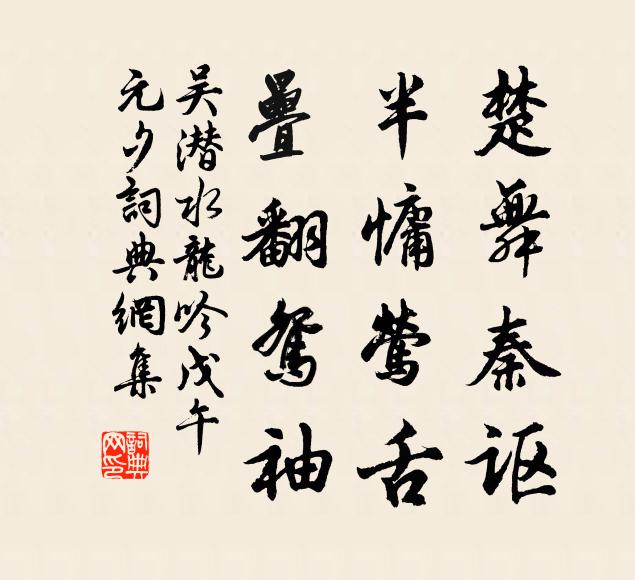 楚舞秦讴
半慵莺舌
疊翻鸳袖
吴潜水龍吟戊午
元夕詞典網集
詞典网印